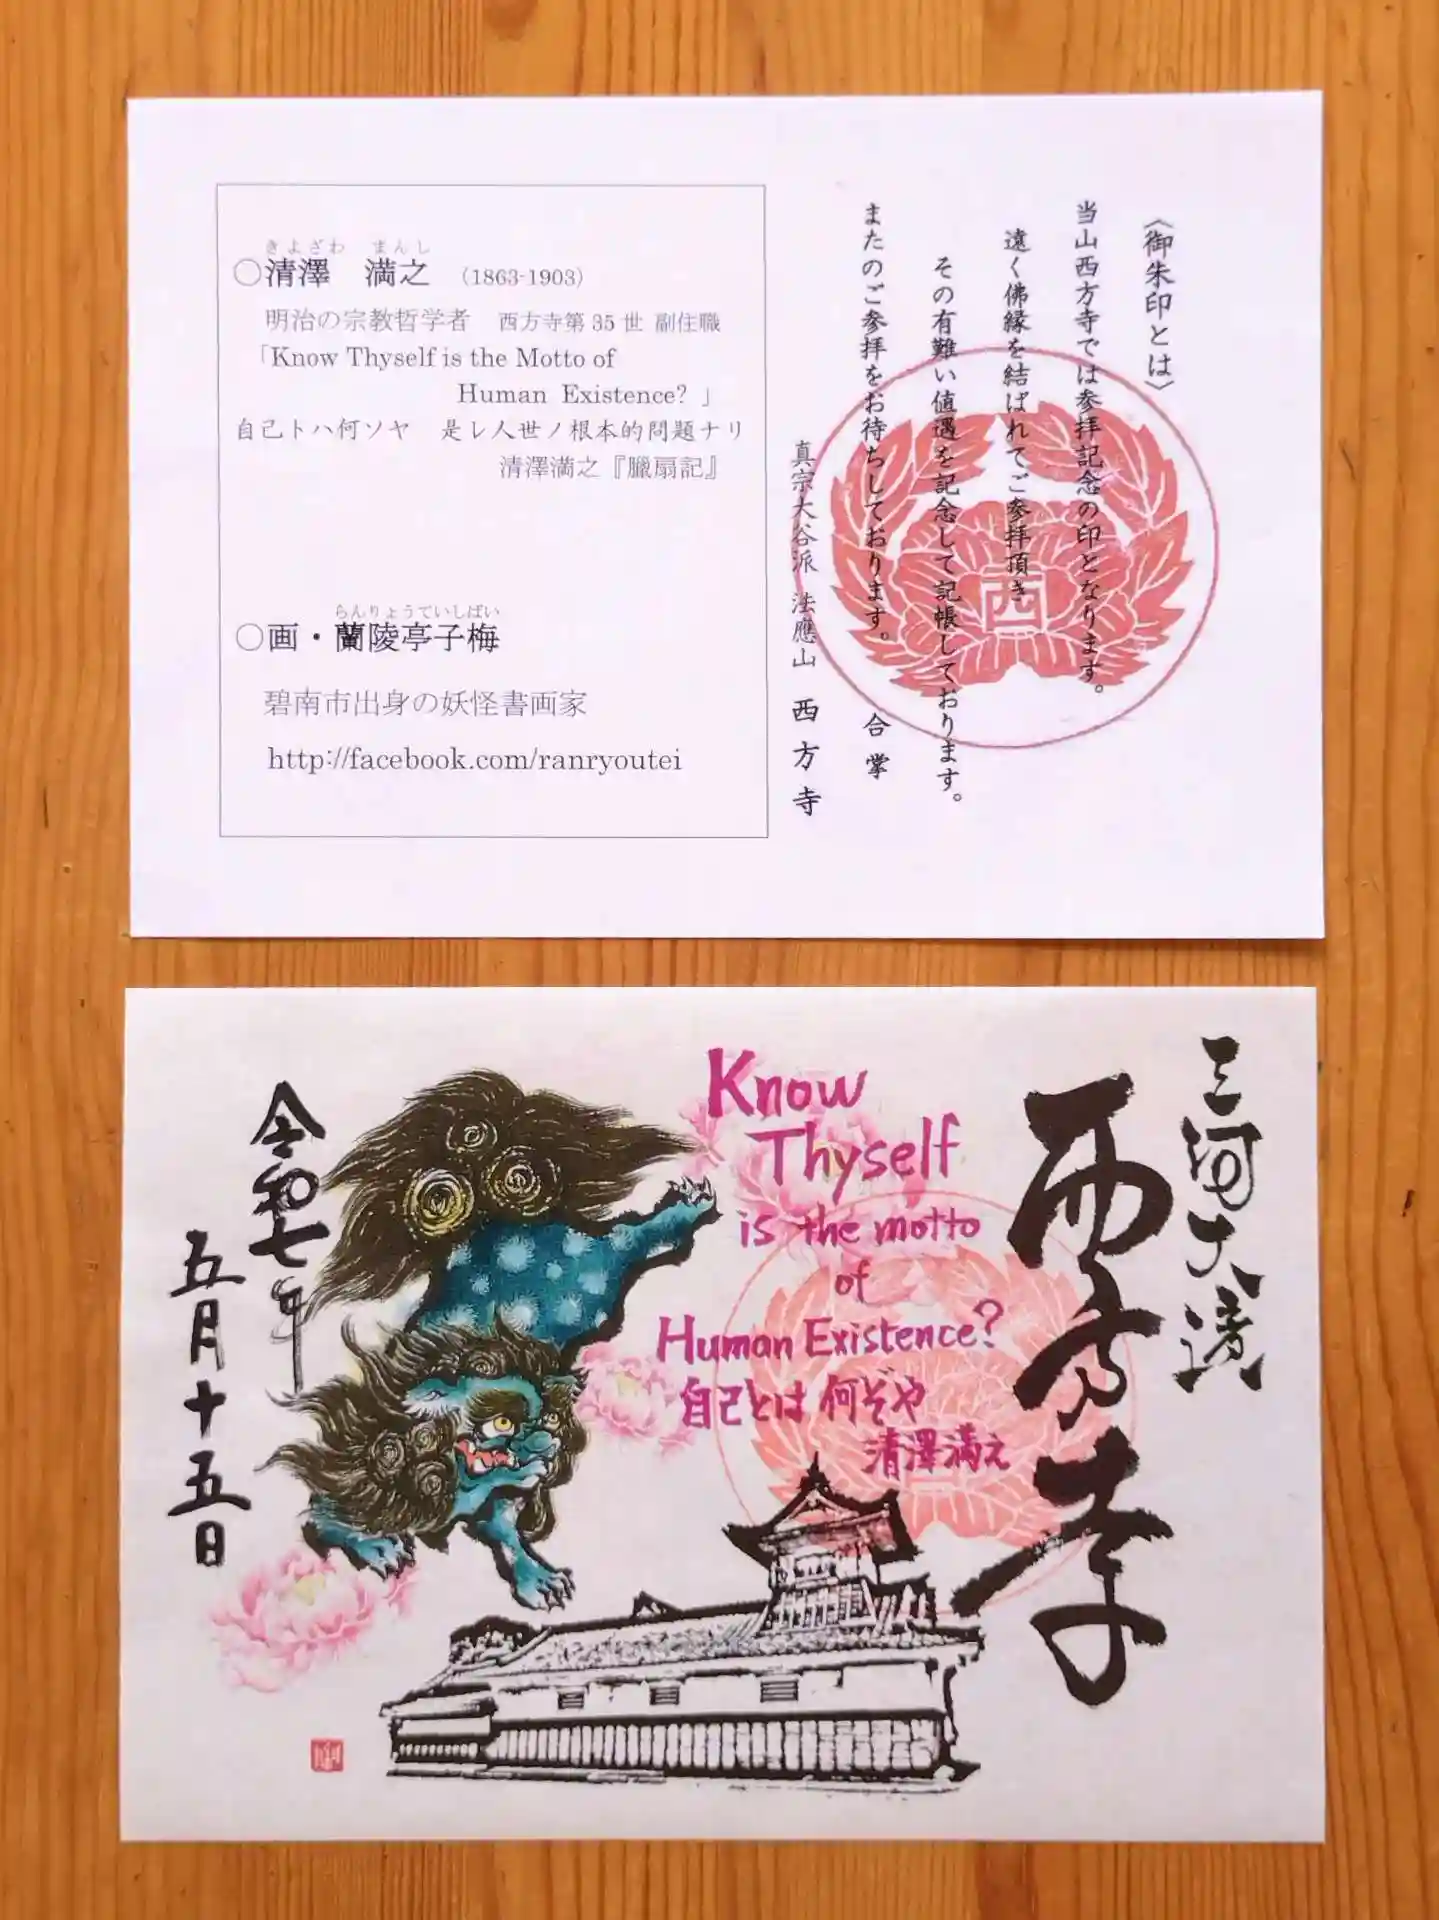 《御朱印とは》
当山西方寺では参拝記念の印となります。
遠く佛縁を結ばれてご参拝頂き
その有難い値遇を記念して記帳しております。
またのご参拝をお待ちしております。 合掌
真宗大谷派 法應山 西方寺
きよざわ まんし
○清澤 満之 (1863-1903)
明治の宗教哲学者 西方寺第35世 副住職
「Know Thyself is the Motto of
Human Existence? 」
自己トハ何ソヤ 是レ人世ノ根本的問題ナリ
清澤満之『臘扇記』
らんりょうていしばい
○画・蘭陵亭子梅
碧南市出身の妖怪書画家
http://facebook.com/ranryoutei
西
三河大濱
西方寺
Know
Thyself
is the motto
of
Human Existence?
自己とは何ぞや
清澤満之
令和七年
五月十五日